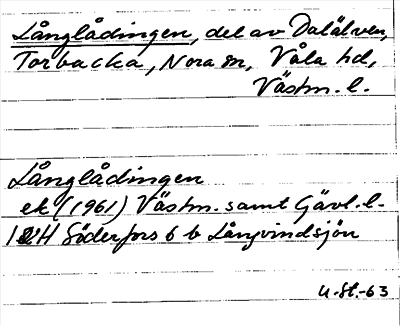 Långlådingen, del av Dalälven,
Torbacka, Nora sn, Våla hd,
Västm. l.
Långlådingen
ek (1961) Västm. samt Gävl. l.
12H Söderfors 6 b Långvindsjön
U.St.-63